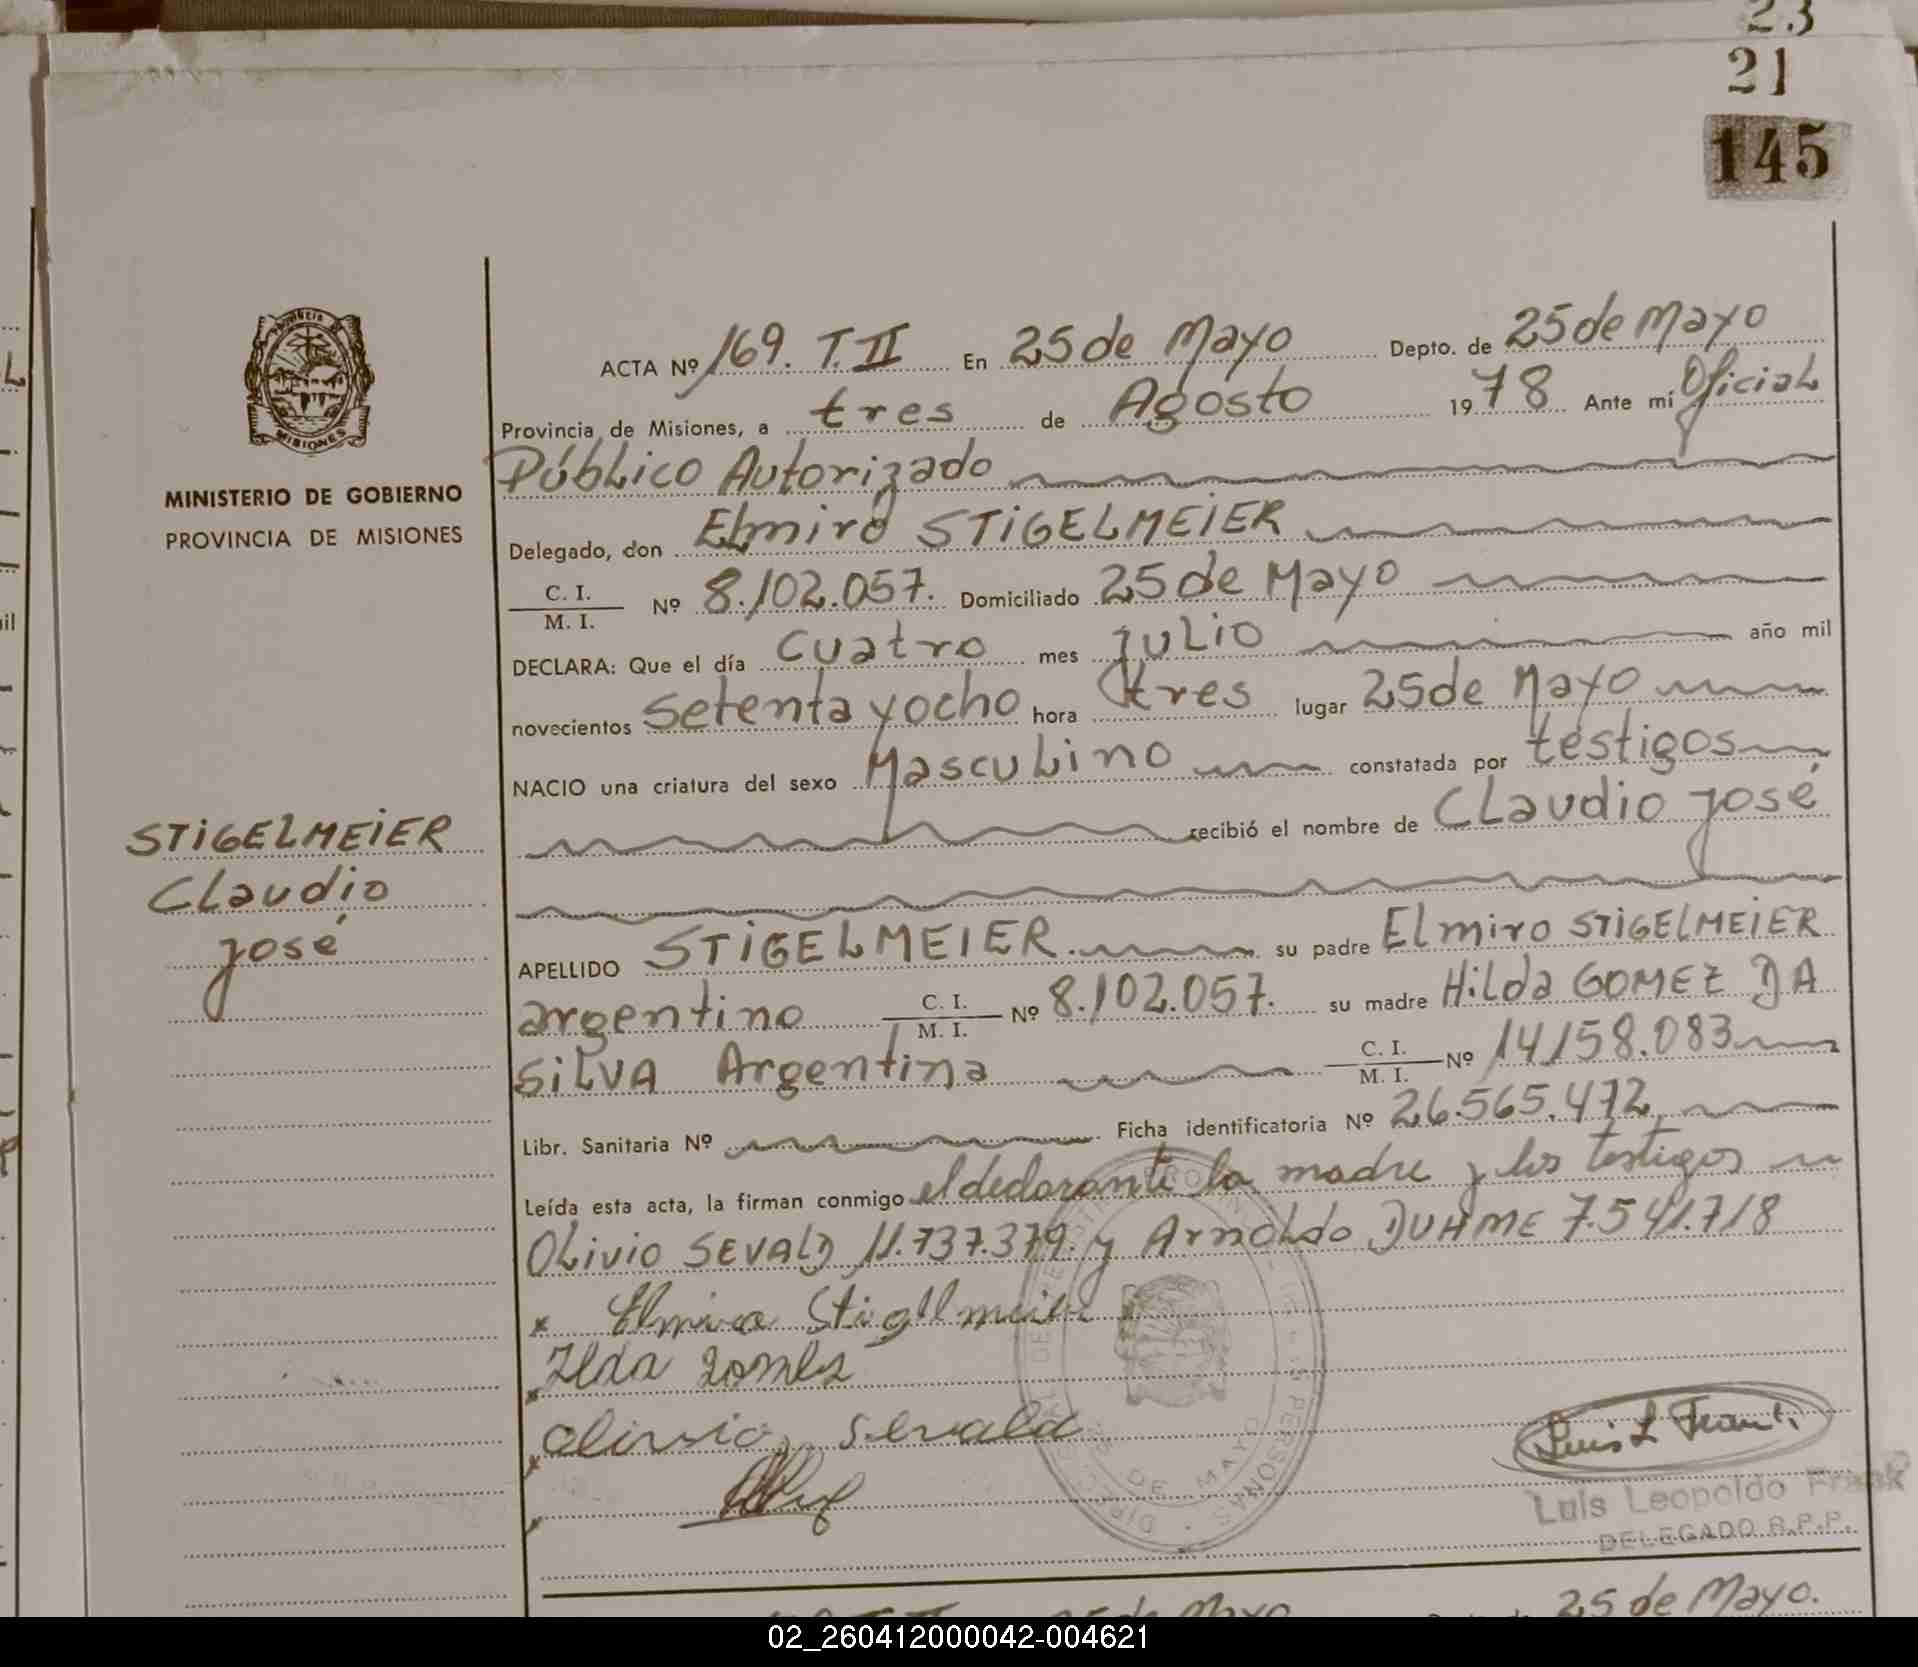 23
21
145
PROVINCIA DE
MISIONES
MINISTERIO DE GOBIERNO
PROVINCIA DE MISIONES
STIGELMEIER
Claudio
José
ACTA Nº 169. T. II En 25 de Mayo Depto. de 25 de Mayo
Provincia de Misiones, a tres de Agosto 1978 Ante mí Oficial
Público Autorizado
Delegado, don Elmiro STIGELMEIER
C. I.
M. I. Nº 8.102.057. Domiciliado 25 de Mayo
DECLARA: Que el día cuatro mes julio año mil
novecientos setenta y ocho hora tres lugar 25 de Mayo
NACIO una criatura del sexo Masculino constatada por testigos
recibió el nombre de Claudio José
APELLIDO STIGELMEIER. su padre Elmiro STIGELMEIER
argentino C. I. M. I. Nº 8.102.057. su madre Hilda GOMEZ DA
SILVA Argentina C. I. M. I. Nº 14.158.083
Libr. Sanitaria Nº Ficha identificatoria Nº 26.565.472
Leída esta acta, la firman conmigo el declarante la madre y los testigos
OLivio SEVALD 11.737.379. y Arnoldo DUHME 7.541.718
x Elmiro Stigelmeier
x Ilda Gomes
x Olivio Sevald
x
Luis L Frank
Luis Leopoldo Frank
DELEGADO R.P.P.
25 de Mayo
25 de Mayo.
02_260412000042-004621